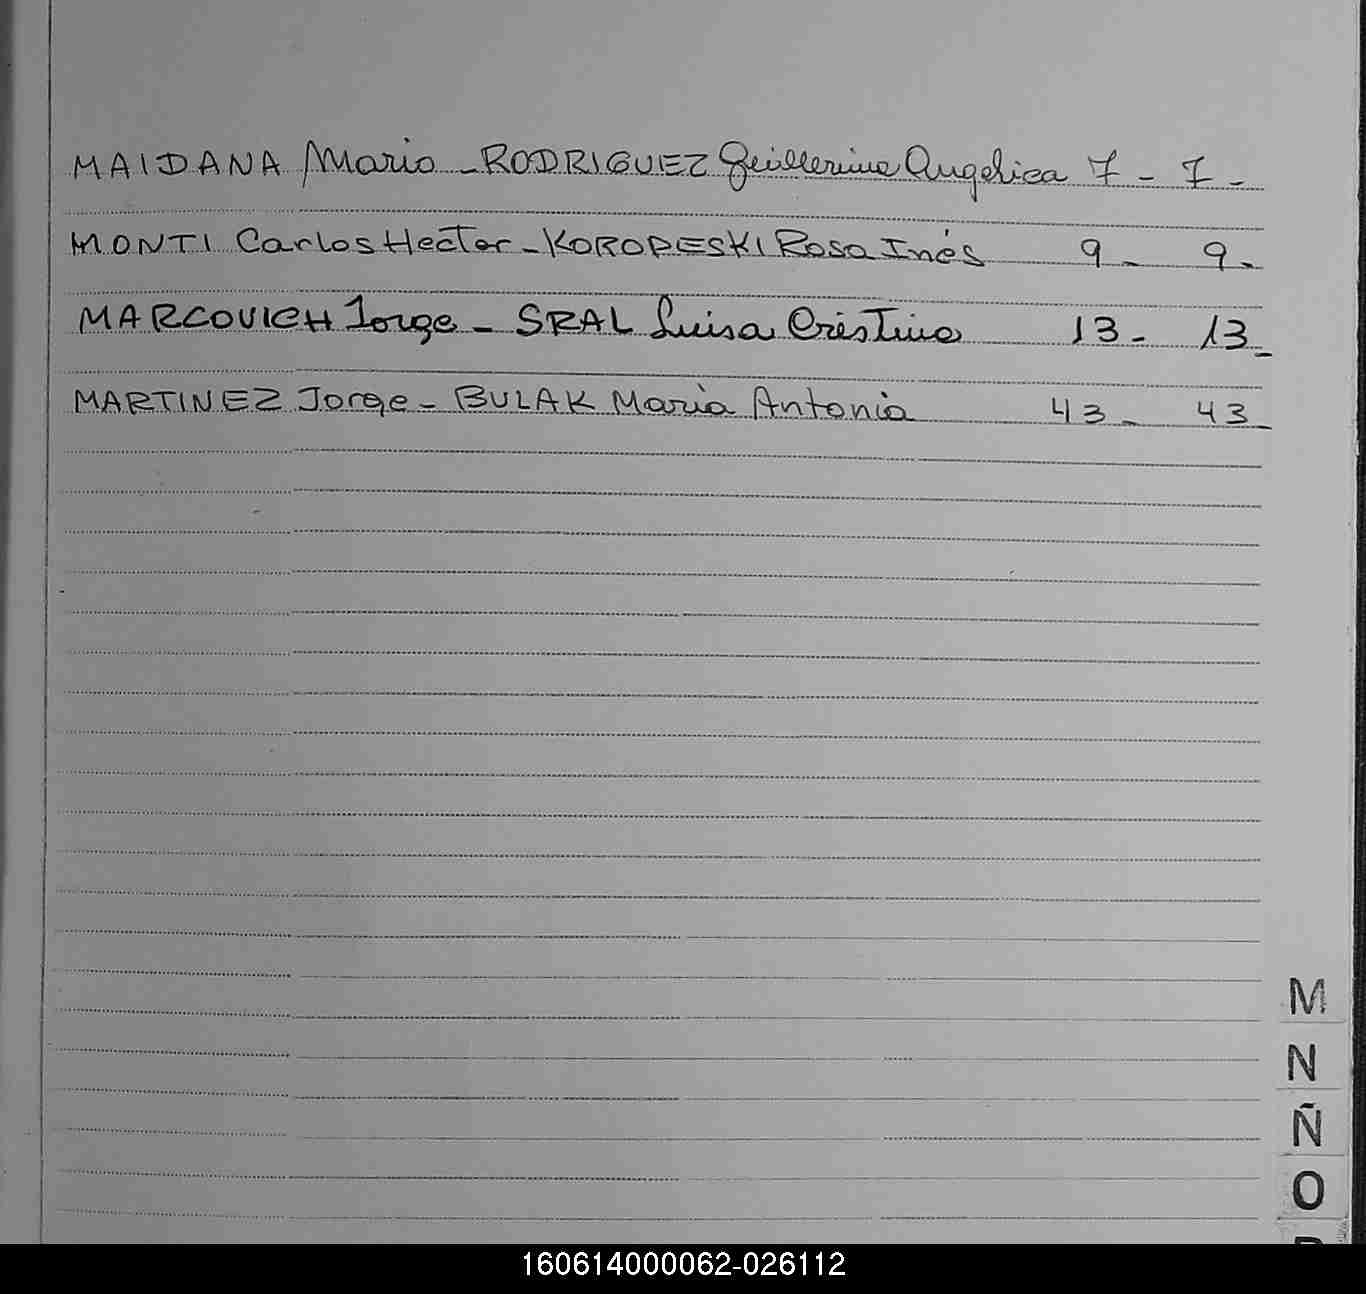 MAIDANA Mario - RODRIGUEZ Guillermina Angelica 7 - 7 -
MONTI Carlos Hector - KOROPESKI Rosa Inés 9 - 9 -
MARCOVICH Jorge - SRAL Luisa Cristina 13 - 13 -
MARTINEZ Jorge - BULAK Maria Antonia 43 - 43 -
M
N
Ñ
O
160614000062-026112